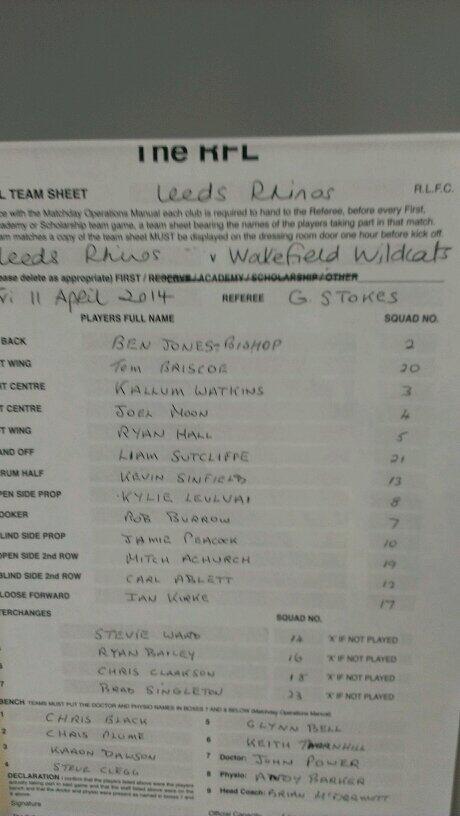 The RFL
L TEAM SHEET Leeds Rhinos R.L.F.C.
ce with the Matchday Operations Manual each club is required to hand to the Referee, before every First,
ademy or Scholarship team game, a team sheet bearing the names of the players taking part in that match.
am matches a copy of the team sheet MUST be displayed on the dressing room door one hour before kick off.
Leeds Rhinos v Wakefield Wildcats
ease delete as appropriate) FIRST / RESERVE / ACADEMY / SCHOLARSHIP / OTHER
ri 11 April 2014 REFEREE G. STOKES
PLAYERS FULL NAME SQUAD NO.
BACK BEN JONES-BISHOP 2
T WING TOM BRISCOE 20
T CENTRE KALLUM WATKINS 3
T CENTRE JOEL MOON 4
T WING RYAN HALL 5
AND OFF LIAM SUTCLIFFE 21
RUM HALF KEVIN SINFIELD 13
PEN SIDE PROP KYLIE LEULUAI 8
OOKER ROB BURROW 7
LIND SIDE PROP JAMIE PEACOCK 10
OPEN SIDE 2nd ROW MITCH ACHURCH 19
BLIND SIDE 2nd ROW CARL ABLETT 12
LOOSE FORWARD IAN KIRKE 17
TERCHANGES SQUAD NO.
STEVIE WARD 14 'X' IF NOT PLAYED
RYAN BAILEY 16 'X' IF NOT PLAYED
CHRIS CLARKSON 18 'X' IF NOT PLAYED
7 BRAD SINGLETON 23 'X' IF NOT PLAYED
BENCH TEAMS MUST PUT THE DOCTOR AND PHYSIO NAMES IN BOXES 7 AND 8 BELOW (Matchday Operations Manual)
1 CHRIS BLACK 5 GLYNN BELL
2 CHRIS PLUME 6 KEITH THORNHILL
3 KARON DAWSON 7 Doctor: JOHN POWER
4 STEVE CLEGG 8 Physio: ANDY BARKER
DECLARATION I confirm that the players listed above were the players 9 Head Coach: BRIAN McDERMOTT
actually taking part in said game and that the staff listed above were on the
bench and that the doctor and physio were present as named in boxes 7 and
8 above.
Signature Official Capacity